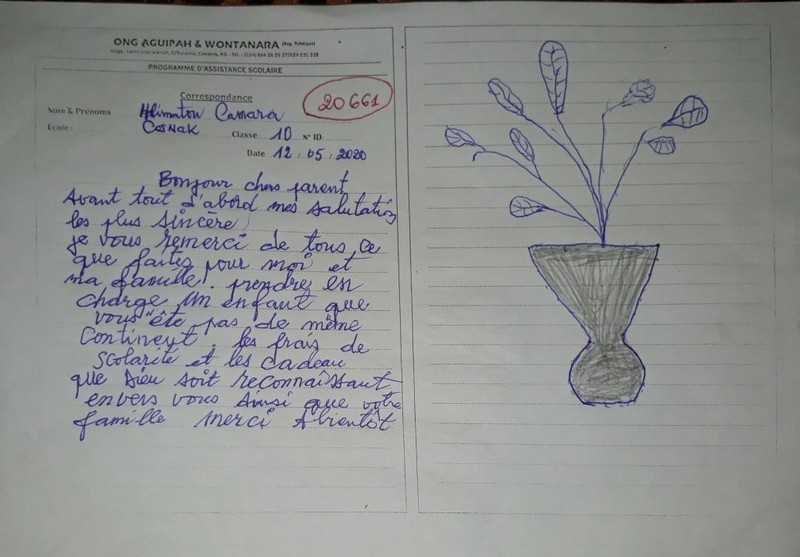 ONG AGUIPAH & WONTANARA (Rép. Tchèque)
PROGRAMME D'ASSISTANCE SCOLAIRE
Correspondance
20661
Nom & Prénoms Alimatou Camara
École : COSNAK Classe 10 N° ID
Date 12.05.2020
Bonjour chers parent
Avant tout d'abord mes salutation
les plus sincère,
je vous remerci de tous ce
que faites pour moi et
ma famille. prendre en
charge un enfant que
vous ête pas de même
Continent, les frais de
scolarité et les cadeau
que Dieu soit reconnaissant
envers vous Ainsi que votre
famille merci Abientôt